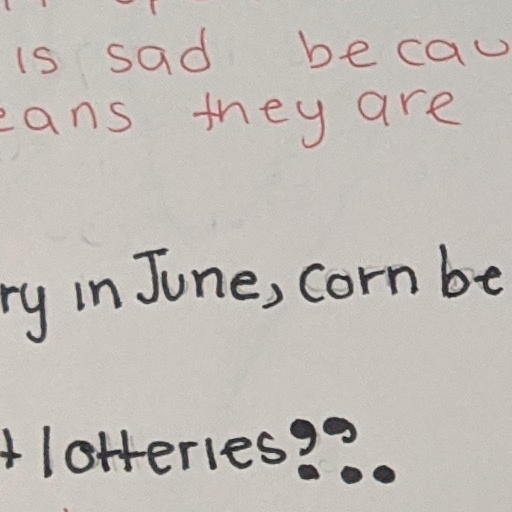 is sad becau
eans they are
ry in June, corn be
t lotteries??..